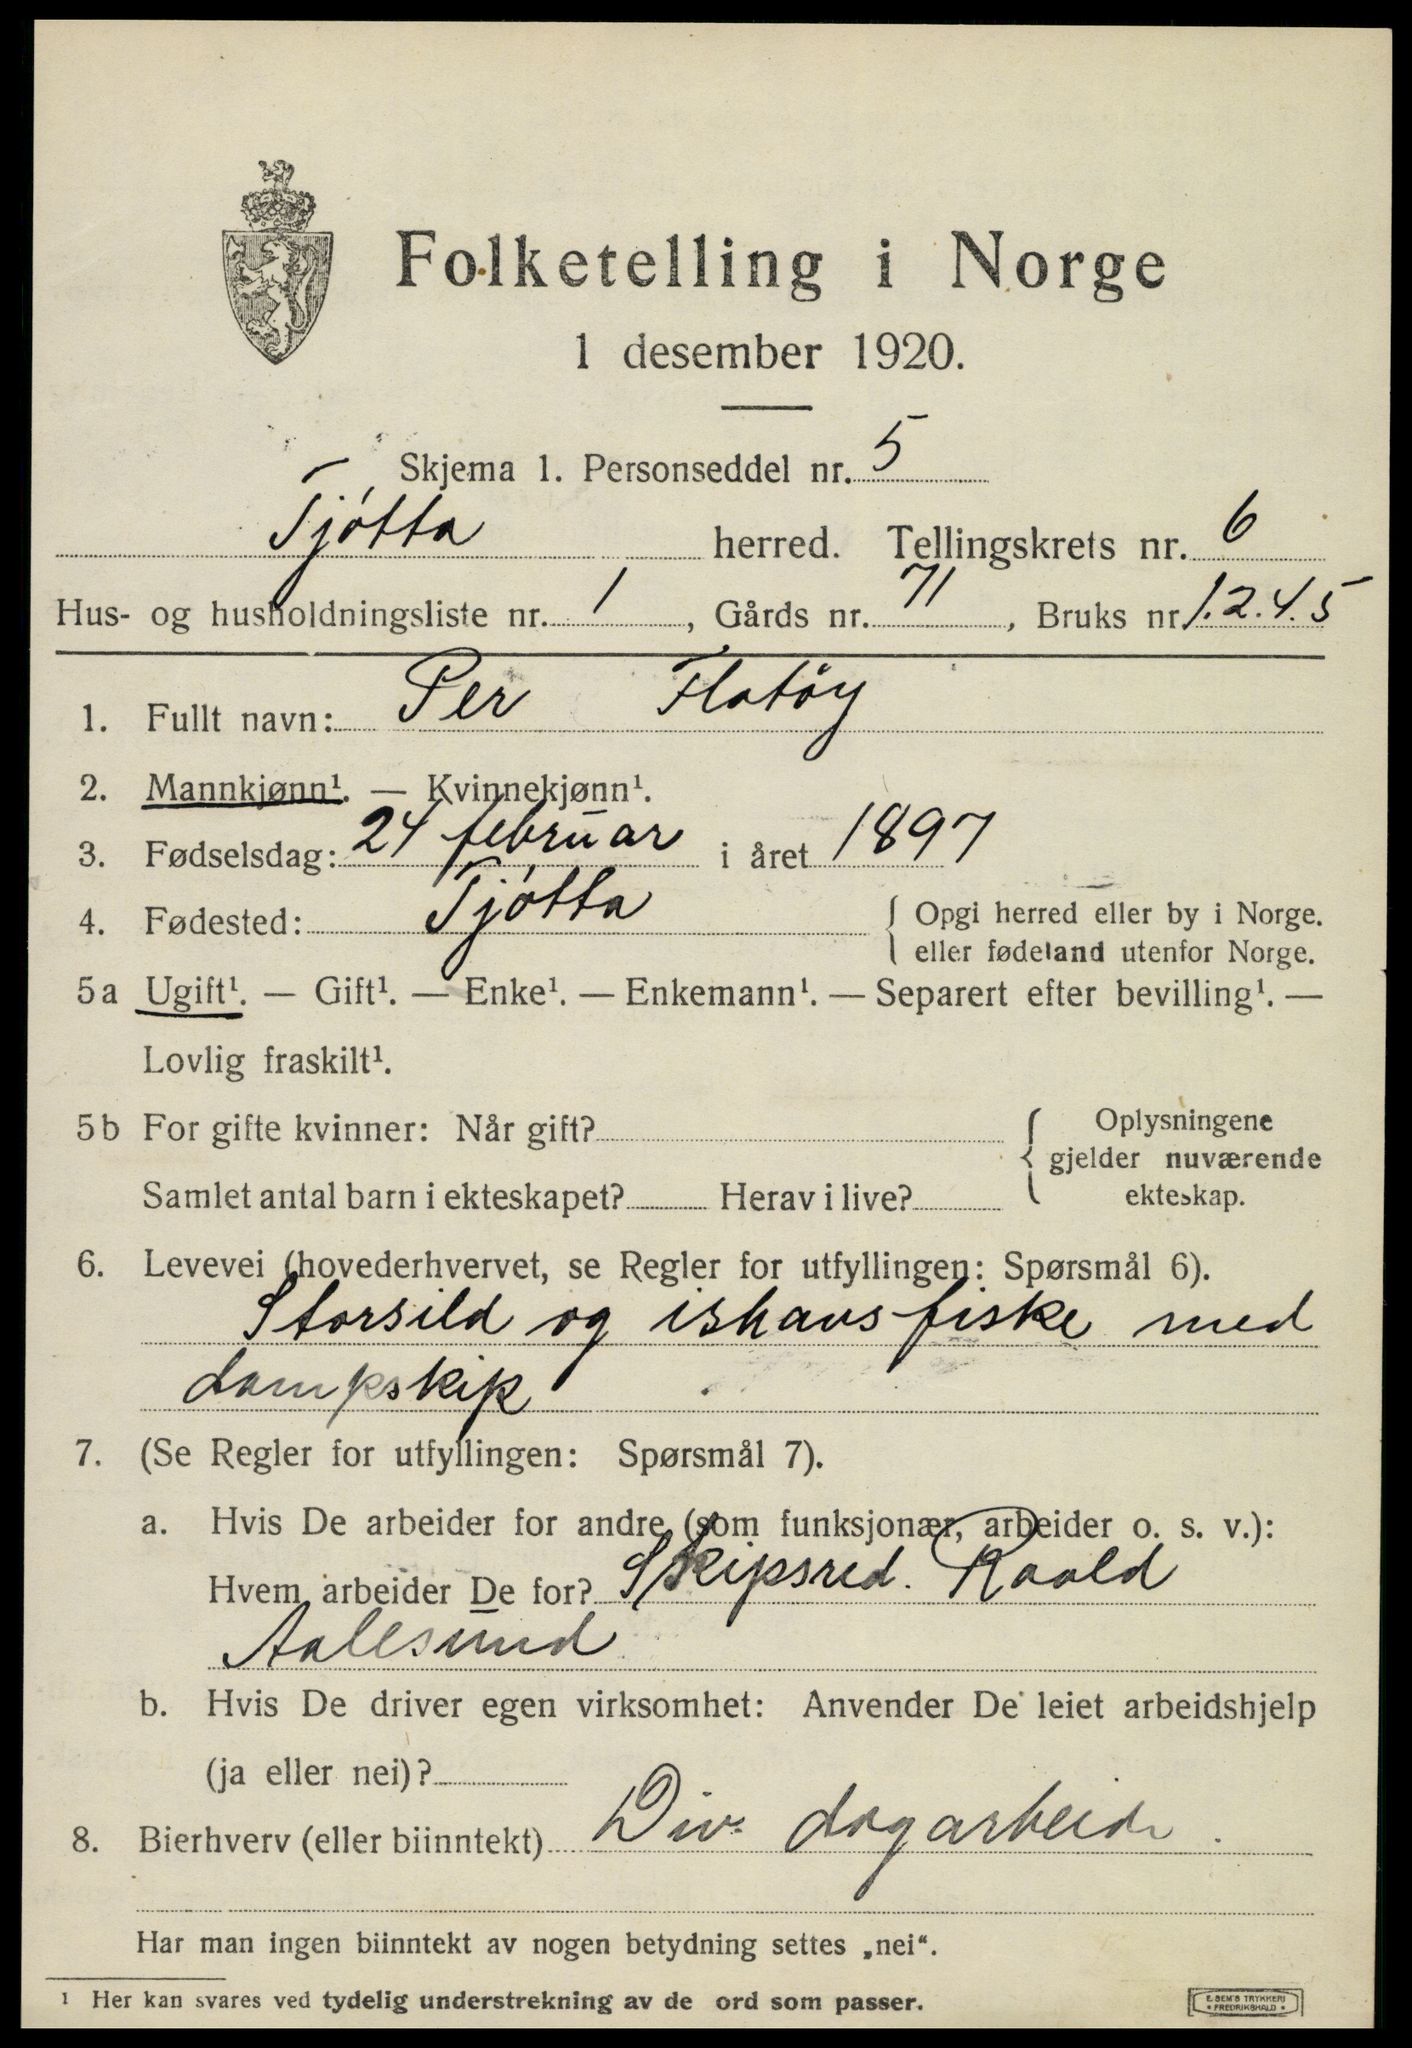 Folketelling i Norge
1 desember 1920.
Skjema 1. Personseddel nr. 5
Tjøtta herred. Tellingskrets nr. 6
Hus- og husholdningsliste nr. 1, Gårds nr. 71, Bruks nr 1.2.4.5
1. Fullt navn: Per Flatøy
2. Mannkjønn¹. — Kvinnekjønn¹.
3. Fødselsdag: 24 februar i året 1897
4. Fødested: Tjøtta { Opgi herred eller by i Norge.
eller fødeland utenfor Norge.
5a Ugift¹. — Gift¹. — Enke¹. — Enkemann¹. — Separert efter bevilling¹. —
Lovlig fraskilt¹.
5b For gifte kvinner: Når gift? { Oplysningene
gjelder nuværende
Samlet antal barn i ekteskapet? Herav i live? ekteskap.
6. Levevei (hovederhvervet, se Regler for utfyllingen: Spørsmål 6).
Storsild og ishavsfiske med
dampskip
7. (Se Regler for utfyllingen: Spørsmål 7).
a. Hvis De arbeider for andre (som funksjonær, arbeider o. s. v.):
Hvem arbeider De for? Skipsred. Roald
Aalesund
b. Hvis De driver egen virksomhet: Anvender De leiet arbeidshjelp
(ja eller nei)?
8. Bierhverv (eller biinntekt) Div. dagarbeide.
Har man ingen biinntekt av nogen betydning settes „nei“.
¹ Her kan svares ved tydelig understrekning av de ord som passer.
E. SEM'S TRYKKERI
• FREDRIKSHALD •